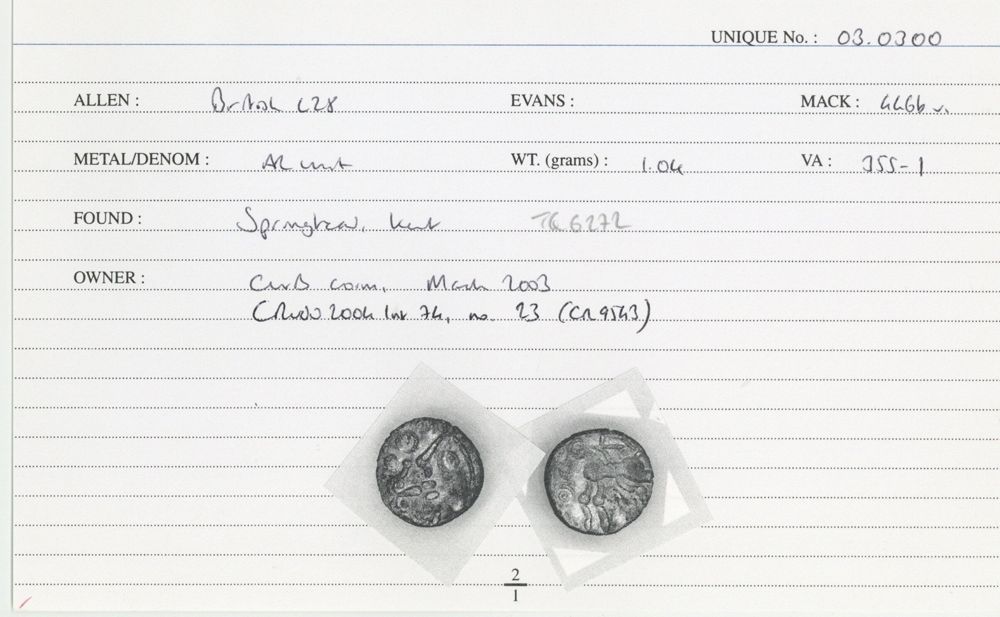 UNIQUE No. : 03.0300
ALLEN : British L28 EVANS : MACK : 446b v.
METAL/DENOM : AR unit WT. (grams) : 1.04 VA : 355-1
FOUND : Springhead, Kent TQ 6272
OWNER : Chris March 2003
2004 74, no. 23 (CR 9543)
2
1